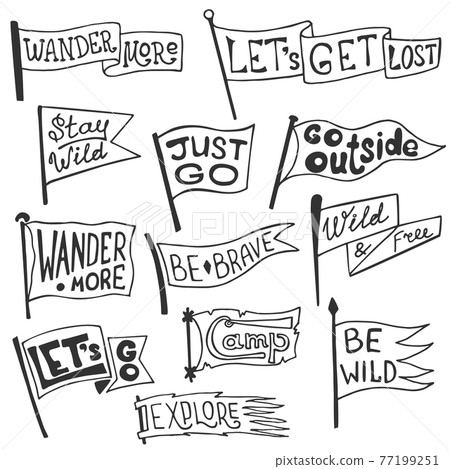 WANDER MORE
LET'S GET LOST
Stay
Wild
JUST
GO
GO
Outside
WANDER
MORE
BE BRAVE
Wild
& Free
LET'S GO
Camp
BE
WILD
EXPLORE
PIXTA
77199251